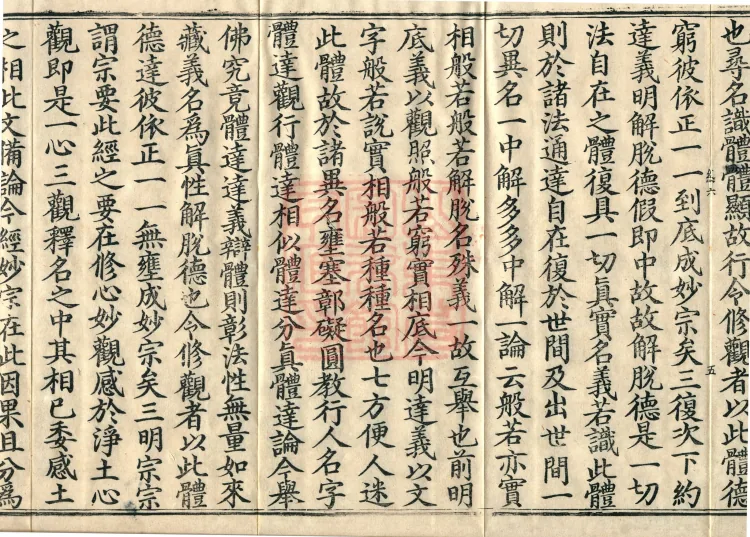 也尋名識體體顯故行令修觀者以此體德
窮彼依正一一到底成妙宗矣三復次下約
達義明解脫德假即中故故解脫德是一切
法自在之體復具一切真實名義若識此體
則於諸法通達自在復於世間及出世間一
切異名一中解多多中解一論云般若亦實
相般若般若解脫名殊義一故互舉也前明
底義以觀照般若窮實相底今明達義以文
字般若說實相般若種種名也七方便人迷
此體故於諸異名壅塞鄣礙圓教行人名字
體達觀行體達相似體達分真體達論今舉
佛究竟體達達義辯體則彰法性無量如來
藏義名為真性解脫德也今修觀者以此體
德達彼依正一一無壅成妙宗矣三明宗宗
謂宗要此經之要在修心妙觀感於淨土心
觀即是一心三觀釋名之中其相已委感土
之相此文備論今經妙宗在此因果且分為
五